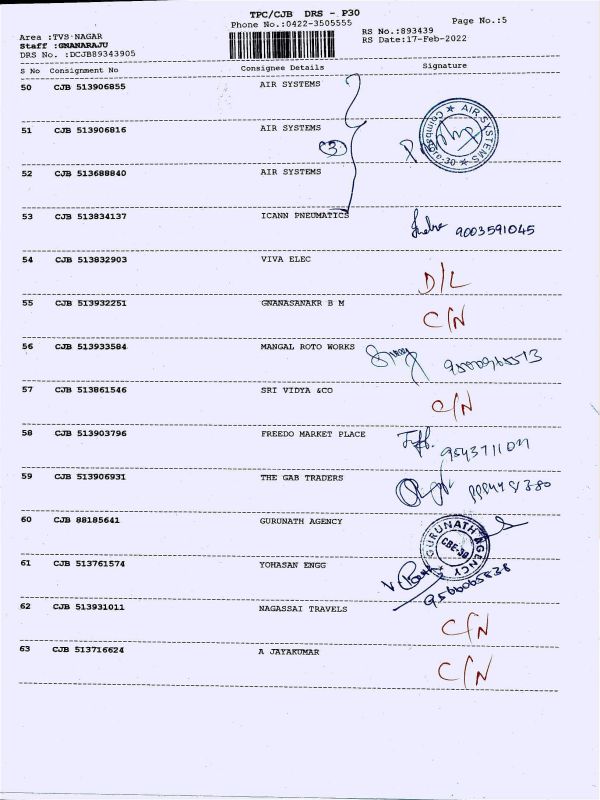 TPC/CJB DRS - P30
Phone No.:0422-3505555
Page No.:5
Area :TVS NAGAR
Staff :GNANARAJU
DRS No. :DCJB89343905
RS No.:893439
RS Date:17-Feb-2022
S No Consignment No Consignee Details Signature
50 CJB 513906855 AIR SYSTEMS
51 CJB 513906816 AIR SYSTEMS
3
AIR SYSTEMS Coimbatore-30
52 CJB 513688840 AIR SYSTEMS
53 CJB 513834137 ICANN PNEUMATICS 9003591045
54 CJB 513832903 VIVA ELEC D/L
55 CJB 513932251 GNANASANAKR B M C/N
56 CJB 513933584 MANGAL ROTO WORKS
57 CJB 513861546 SRI VIDYA &CO C/N
58 CJB 513903796 FREEDO MARKET PLACE
59 CJB 513906931 THE GAB TRADERS
60 CJB 88185641 GURUNATH AGENCY
GURUNATH AGENCY CBE-30
61 CJB 513761574 YOHASAN ENGG
62 CJB 513931011 NAGASSAI TRAVELS C/N
63 CJB 513716624 A JAYAKUMAR C/N